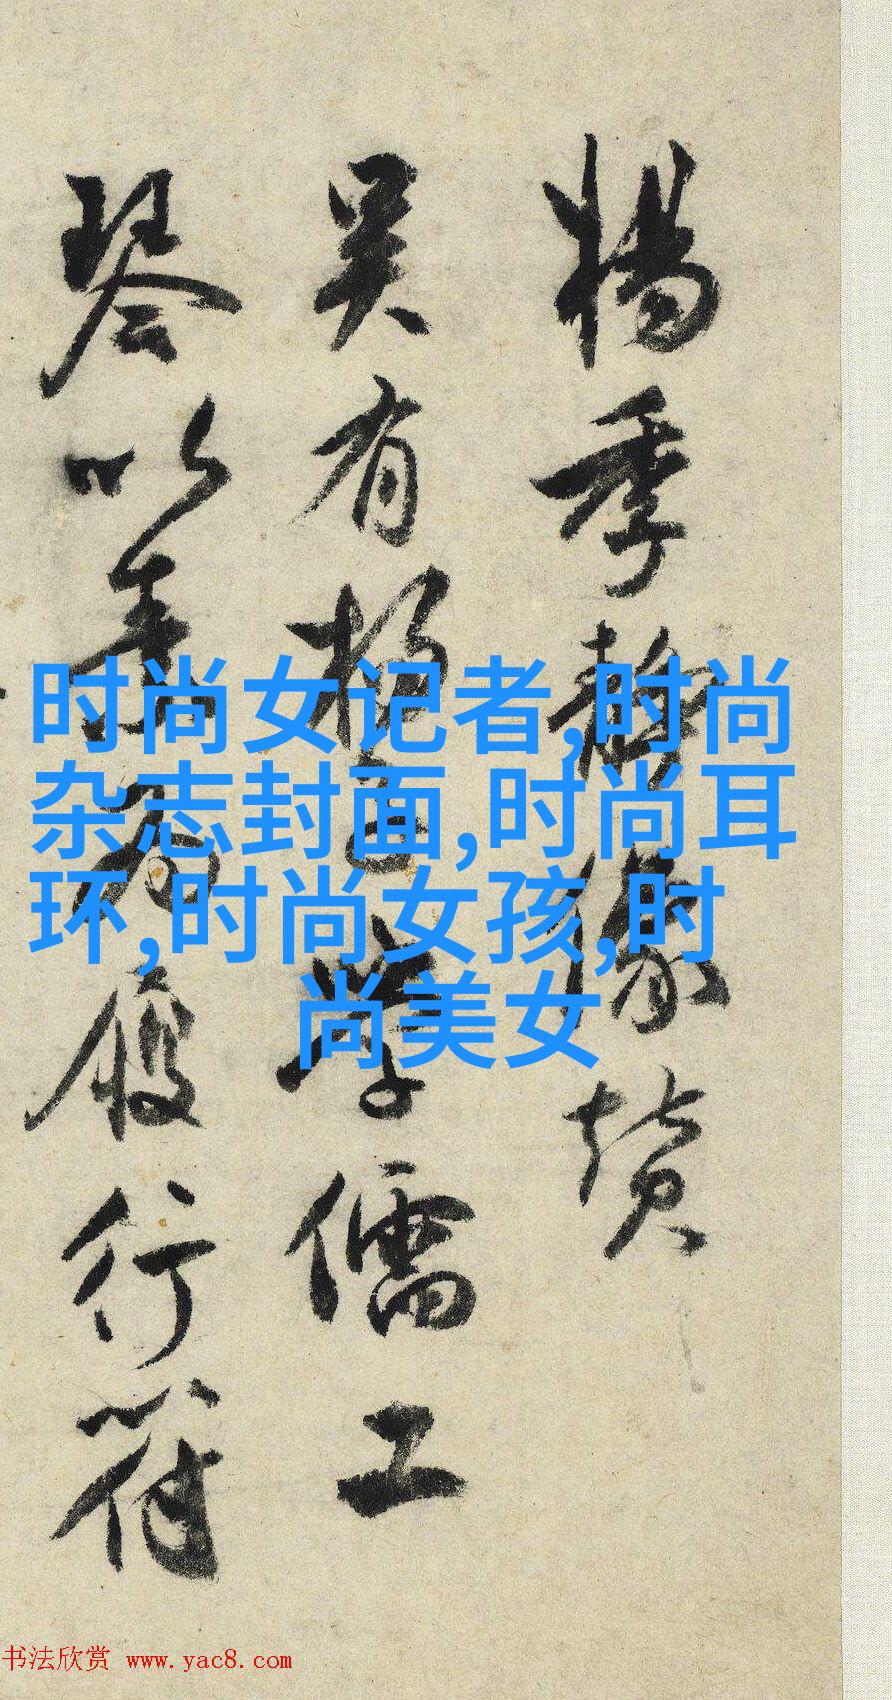 楊季靜像贊
吴有楊子學儒工
琴以善為履行符
时尚女记者,时尚
杂志封面,时尚耳
环,时尚女孩,时
尚美女
书法欣赏 www.yac8.com